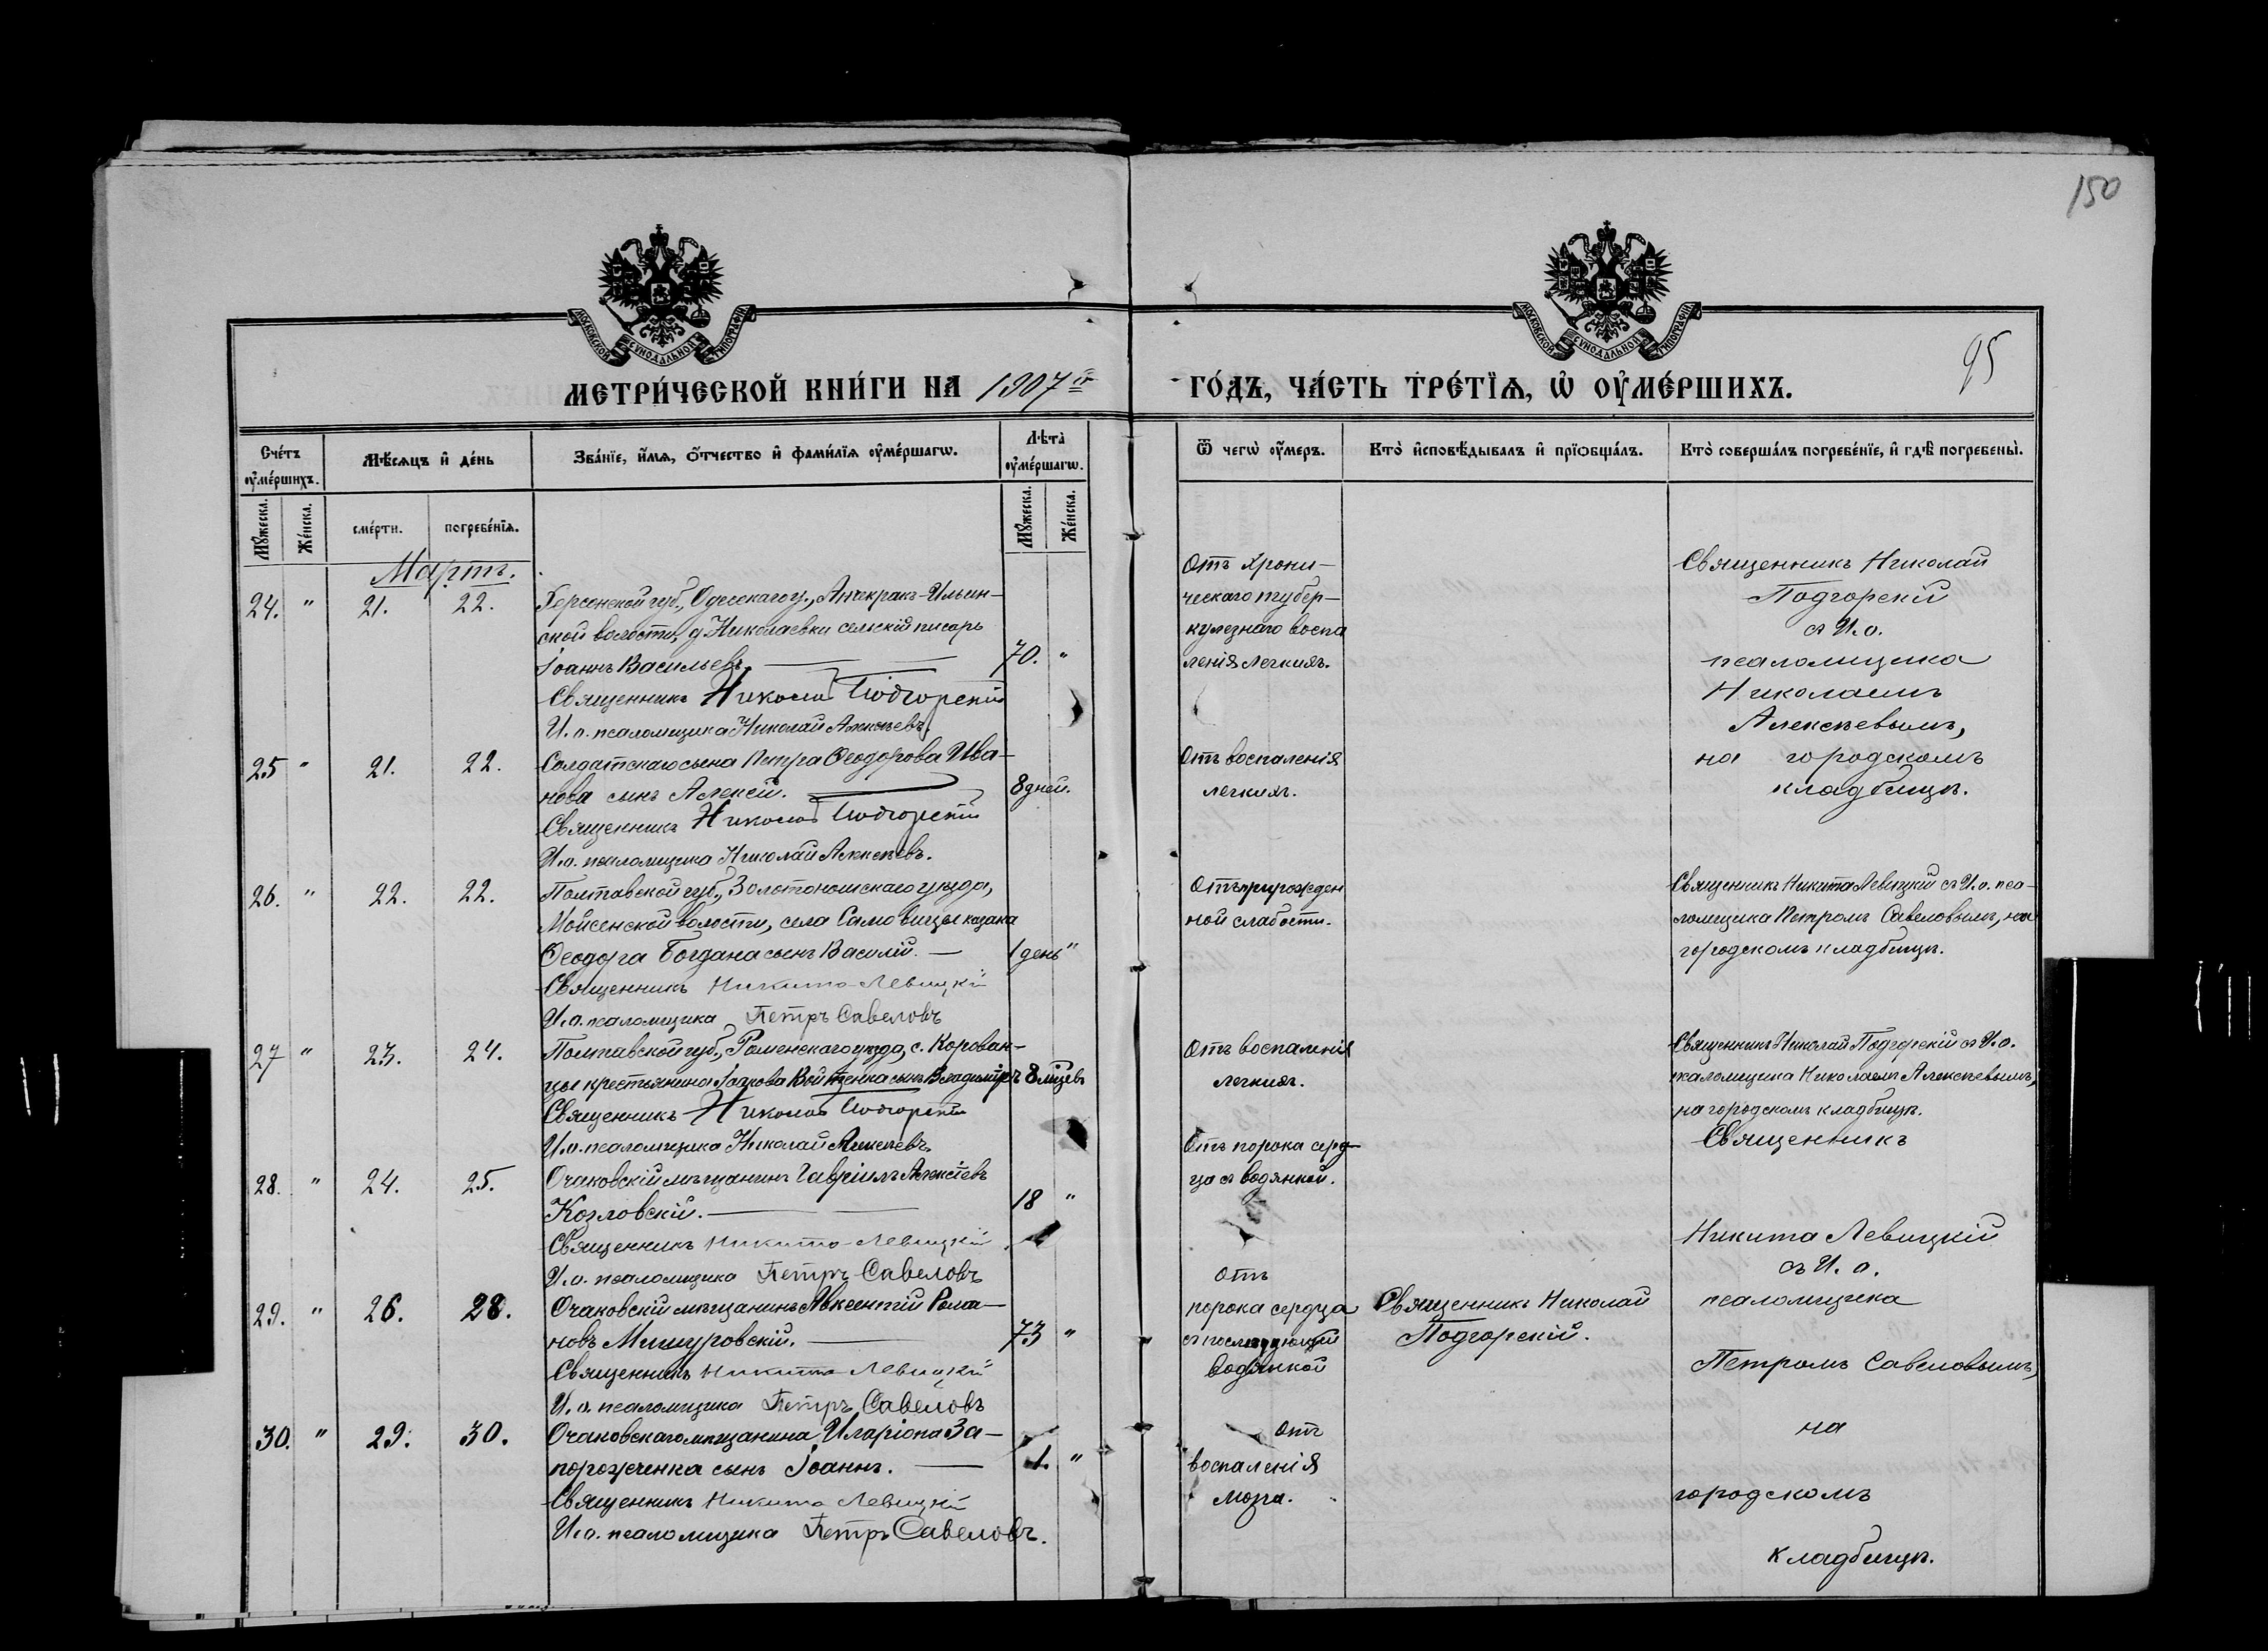 150
95
МОСКОВСКОЙ СУНОДАЛЬНОЙ ТИПОГРАФІИ
МОСКОВСКОЙ СУНОДАЛЬНОЙ ТИПОГРАФІИ
МЕТРИ́ЧЕСКОЙ КНИ́ГИ НА 1907й ГО́ДЪ, ЧА́СТЬ ТРЕ́ТІѦ, Ѡ҆ ОУ҆МЕ́РШИХЪ.
Сче́тъ оу҆ме́ршихъ.
Мѣ́сѧцъ и҆ де́нь
Зва́нїе, и҆́мѧ, ѻ҆́тчество и҆ фами́лїѧ оу҆ме́ршагѡ.
Лѣта̀ оу҆ме́ршагѡ.
Ѿ чегѡ̀ оу҆́меръ.
Кто̀ и҆сповѣ́дывалъ и҆ прїѻбща́лъ.
Кто̀ соверша́лъ погребе́нїе, и҆ гдѣ̀ погребены̀.
Мꙋ́жеска.
Же́нска.
сме́рти.
погребе́нїѧ.
Мꙋ́жеска.
Же́нска.
Мартъ.
24. " 21. 22.
Херсонской губ., Одесскаго у., Анчекракъ-Ильин-
ской волости, д. Николаевки сельскій писарь
Іоаннъ Васильевъ. 70. "
Священникъ Николай Подгорскій
И. о. псаломщика Николай Алексѣевъ.
Отъ хрони-
ческаго тубер-
кулезнаго воспа
ленія легкихъ.
Священникъ Николай
Подгорскій
съ И. о.
псаломщика
Николаемъ
Алексѣевымъ,
на городскомъ
кладбищѣ.
25 " 21. 22.
Солдатскаго сына Петра Ѳеодорова Ива-
нова сынъ Алексій. 8 дней.
Священникъ Николай Подгорскій
И. о. псаломщика Николай Алексѣевъ.
Отъ воспаленія
легкихъ.
26. " 22. 22.
Полтавской губ., Золотоношскаго уѣзда,
Мойсенской волости, села Самовицы казака
Ѳеодора Богдана сынъ Василій. 1 день "
Священникъ Никита Левицкій
И. о. псаломщика Петръ Савеловъ
Отъ прирожден
ной слабости.
Священникъ Никита Левицкій съ И. о. пса-
ломщика Петромъ Савеловымъ, на
городскомъ кладбищѣ.
27 " 23. 24.
Полтавской губ., Роменскаго уѣзда, с. Корован-
цы крестьянина Іакова Войтенка сынъ Владиміръ 8 мѣцевъ
Священникъ Николай Подгорскій
И. о. псаломщика Николай Алексѣевъ.
Отъ воспаленія
легкихъ.
Священникъ Николай Подгорскій съ И. о.
псаломщика Николаемъ Алексѣевымъ,
на городскомъ кладбищѣ.
28. " 24. 25.
Очаковскій мѣщанинъ Гавріилъ Алексѣевъ
Козловскій. 18 "
Священникъ Никита Левицкій
И. о. псаломщика Петръ Савеловъ
Отъ порока серд-
ца съ водянкой.
Священникъ
Никита Левицкій
съ И. о.
псаломщика
Петромъ Савеловымъ,
на
городскомъ
кладбищѣ.
29. " 26. 28.
Очаковскій мѣщанинъ Авксентій Рома-
новъ Мишуровскій. 73 "
Священникъ Никита Левицкій
И. о. псаломщика Петръ Савеловъ
Отъ
порока сердца
съ послѣдующей
водянкой
Священникъ Николай
Подгорскій.
30. " 29. 30.
Очаковскаго мѣщанина Иларіона За-
порожченка сынъ Іоаннъ. 1. "
Священникъ Никита Левицкій
И. о. псаломщика Петръ Савеловъ.
Отъ
воспаленія
мозга.